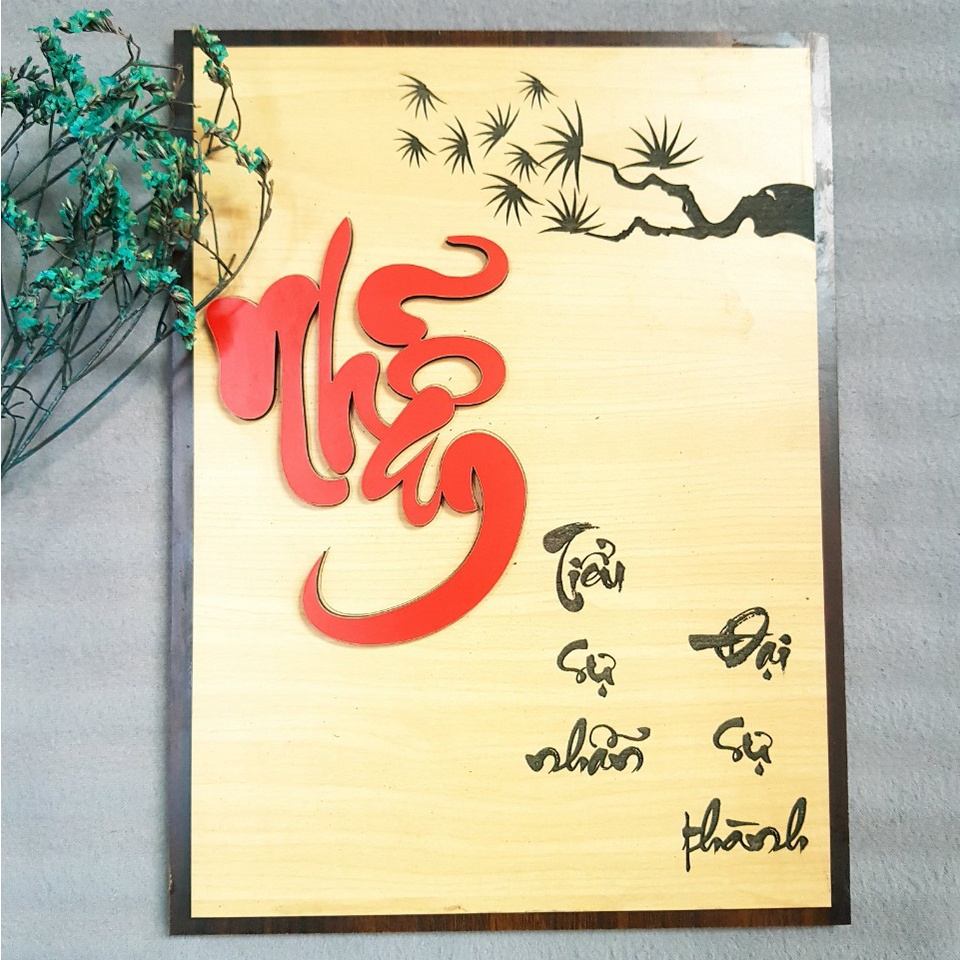 Nhẫn
Tiểu
sự
nhẫn
Đại
sự
thành